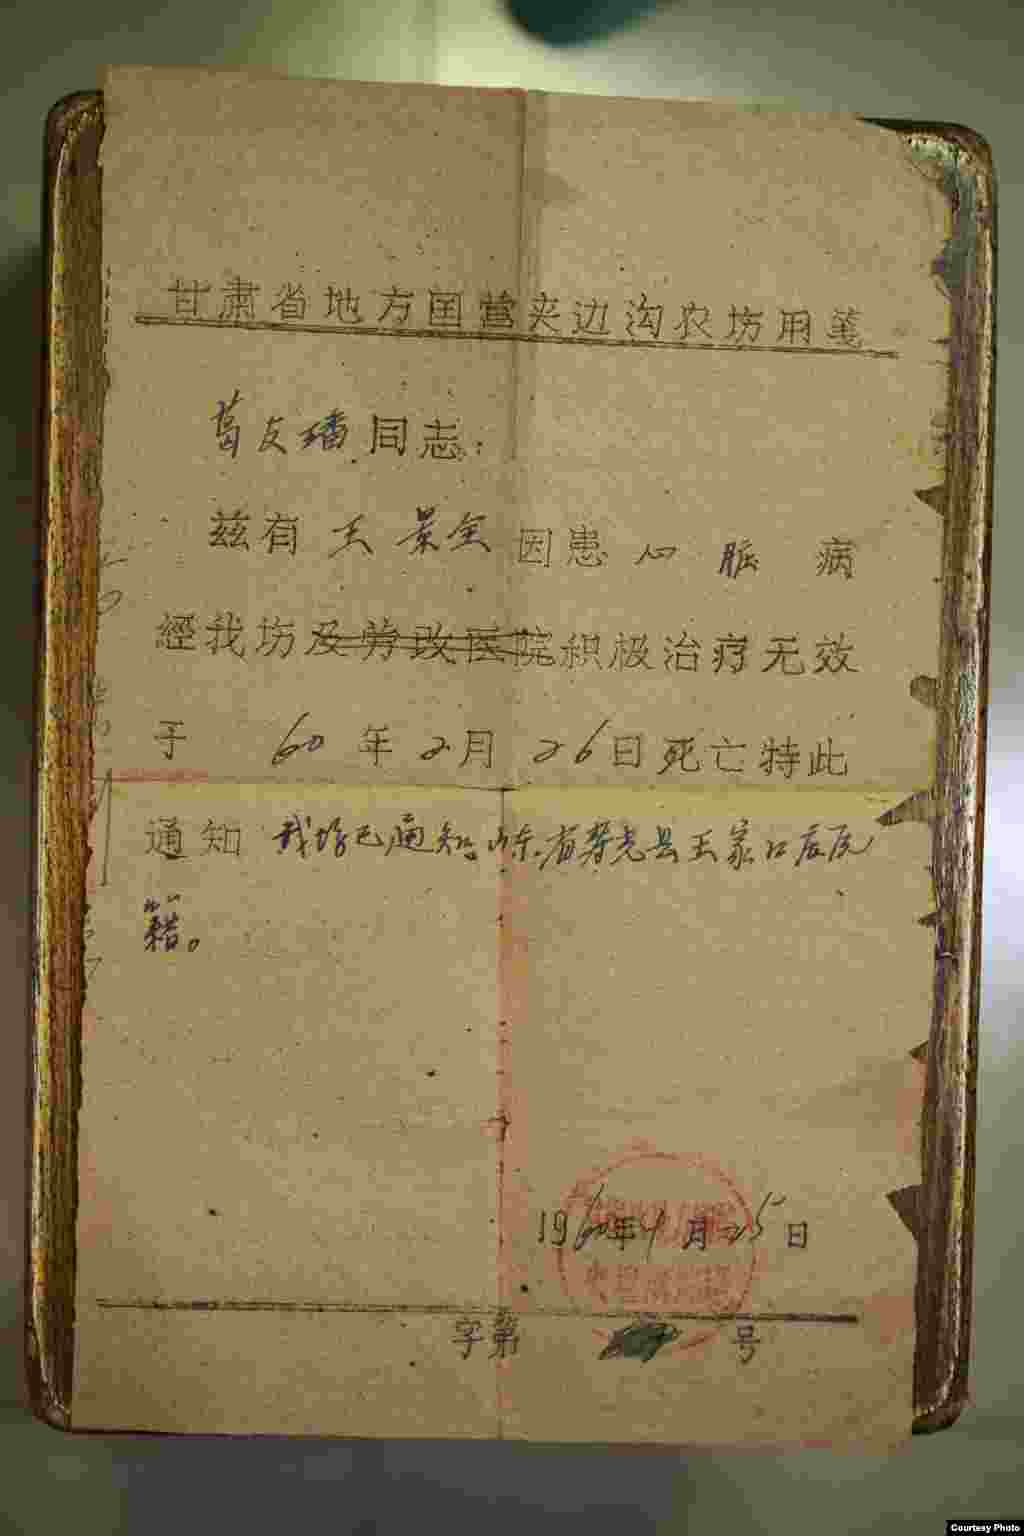 甘肃省地方国营夹边沟农坊用笺
葛友璠同志：
兹有 王景全 因患 心脏 病
經我坊及劳改医院积极治疗无效
于 60 年 2 月 26 日死亡特此
通知 我场已通知山东省寿光县王家口
籍。
1960年4月25日
字第 号
Courtesy Photo